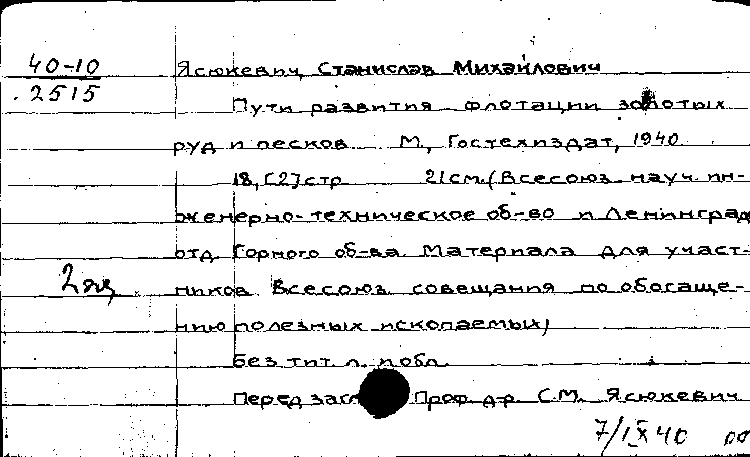 40-10
2515
Ясюкевич, Станислав Михайлович
Пути развития флотации золотых
руд и песков М., Гостехиздат, 1940.
18, [2] стр 21 см. (Всесоюз. науч. ин-
женерно-техническое об-во и Ленинград
отд. Горного об-ва. Материала для участ-
2 экз
ников Всесоюз. совещания по обогаще-
нию полезных ископаемых)
Без тит. л. и обл.
Перед заг Проф. д-р. С.М. Ясюкевич
7/IX 40